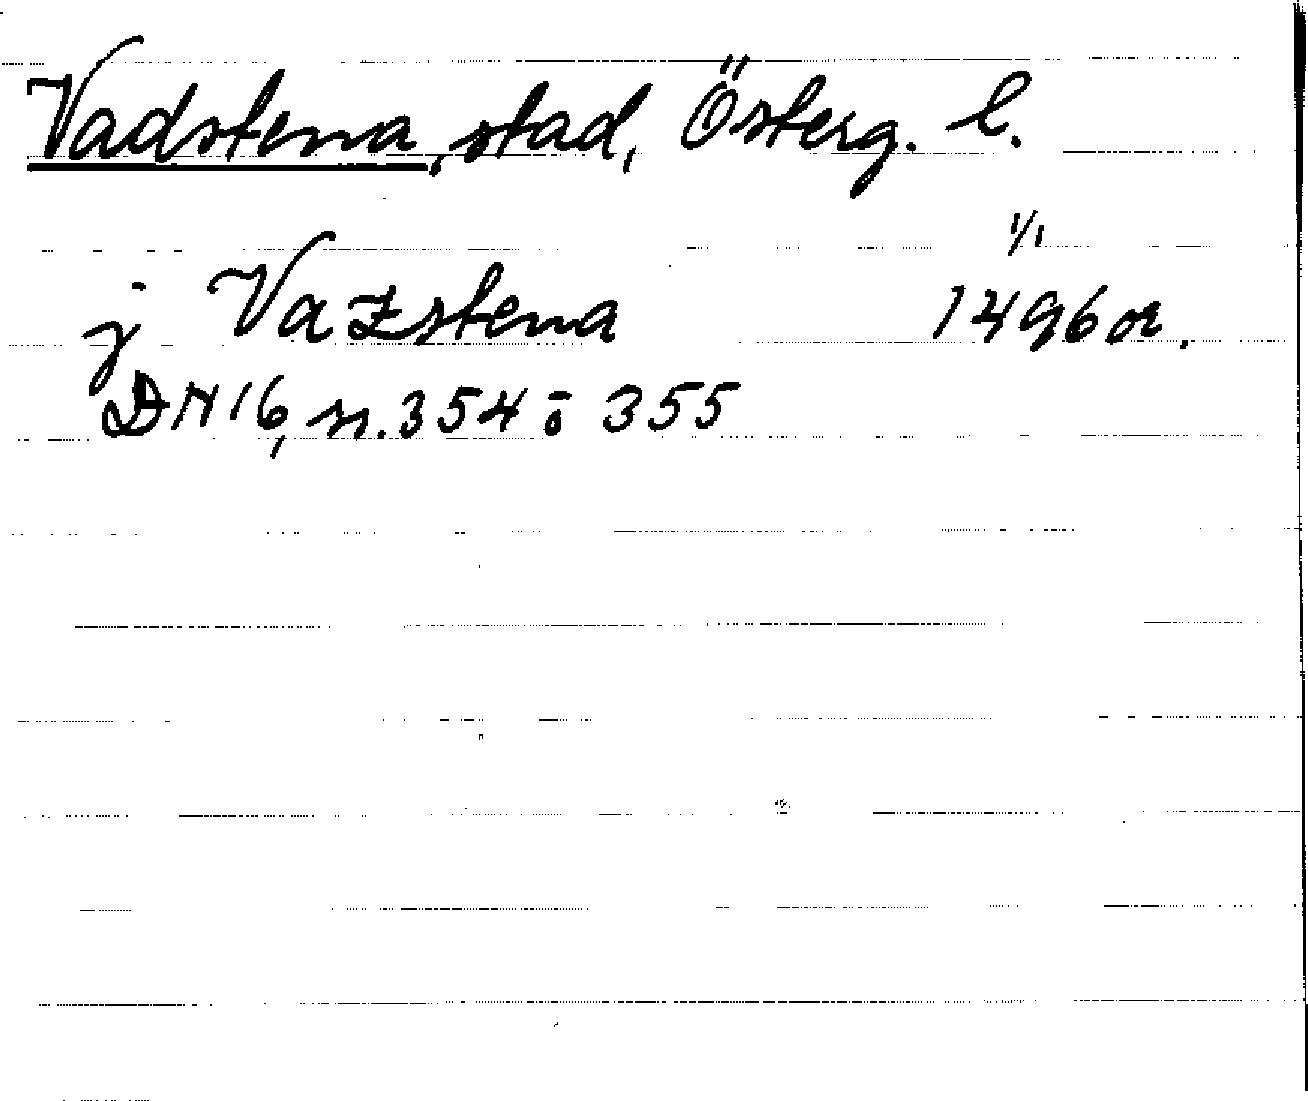 Vadstena, stad, Österg. l.
1/1
j Vazstena 1496 or.
DN 16, n. 354 o 355